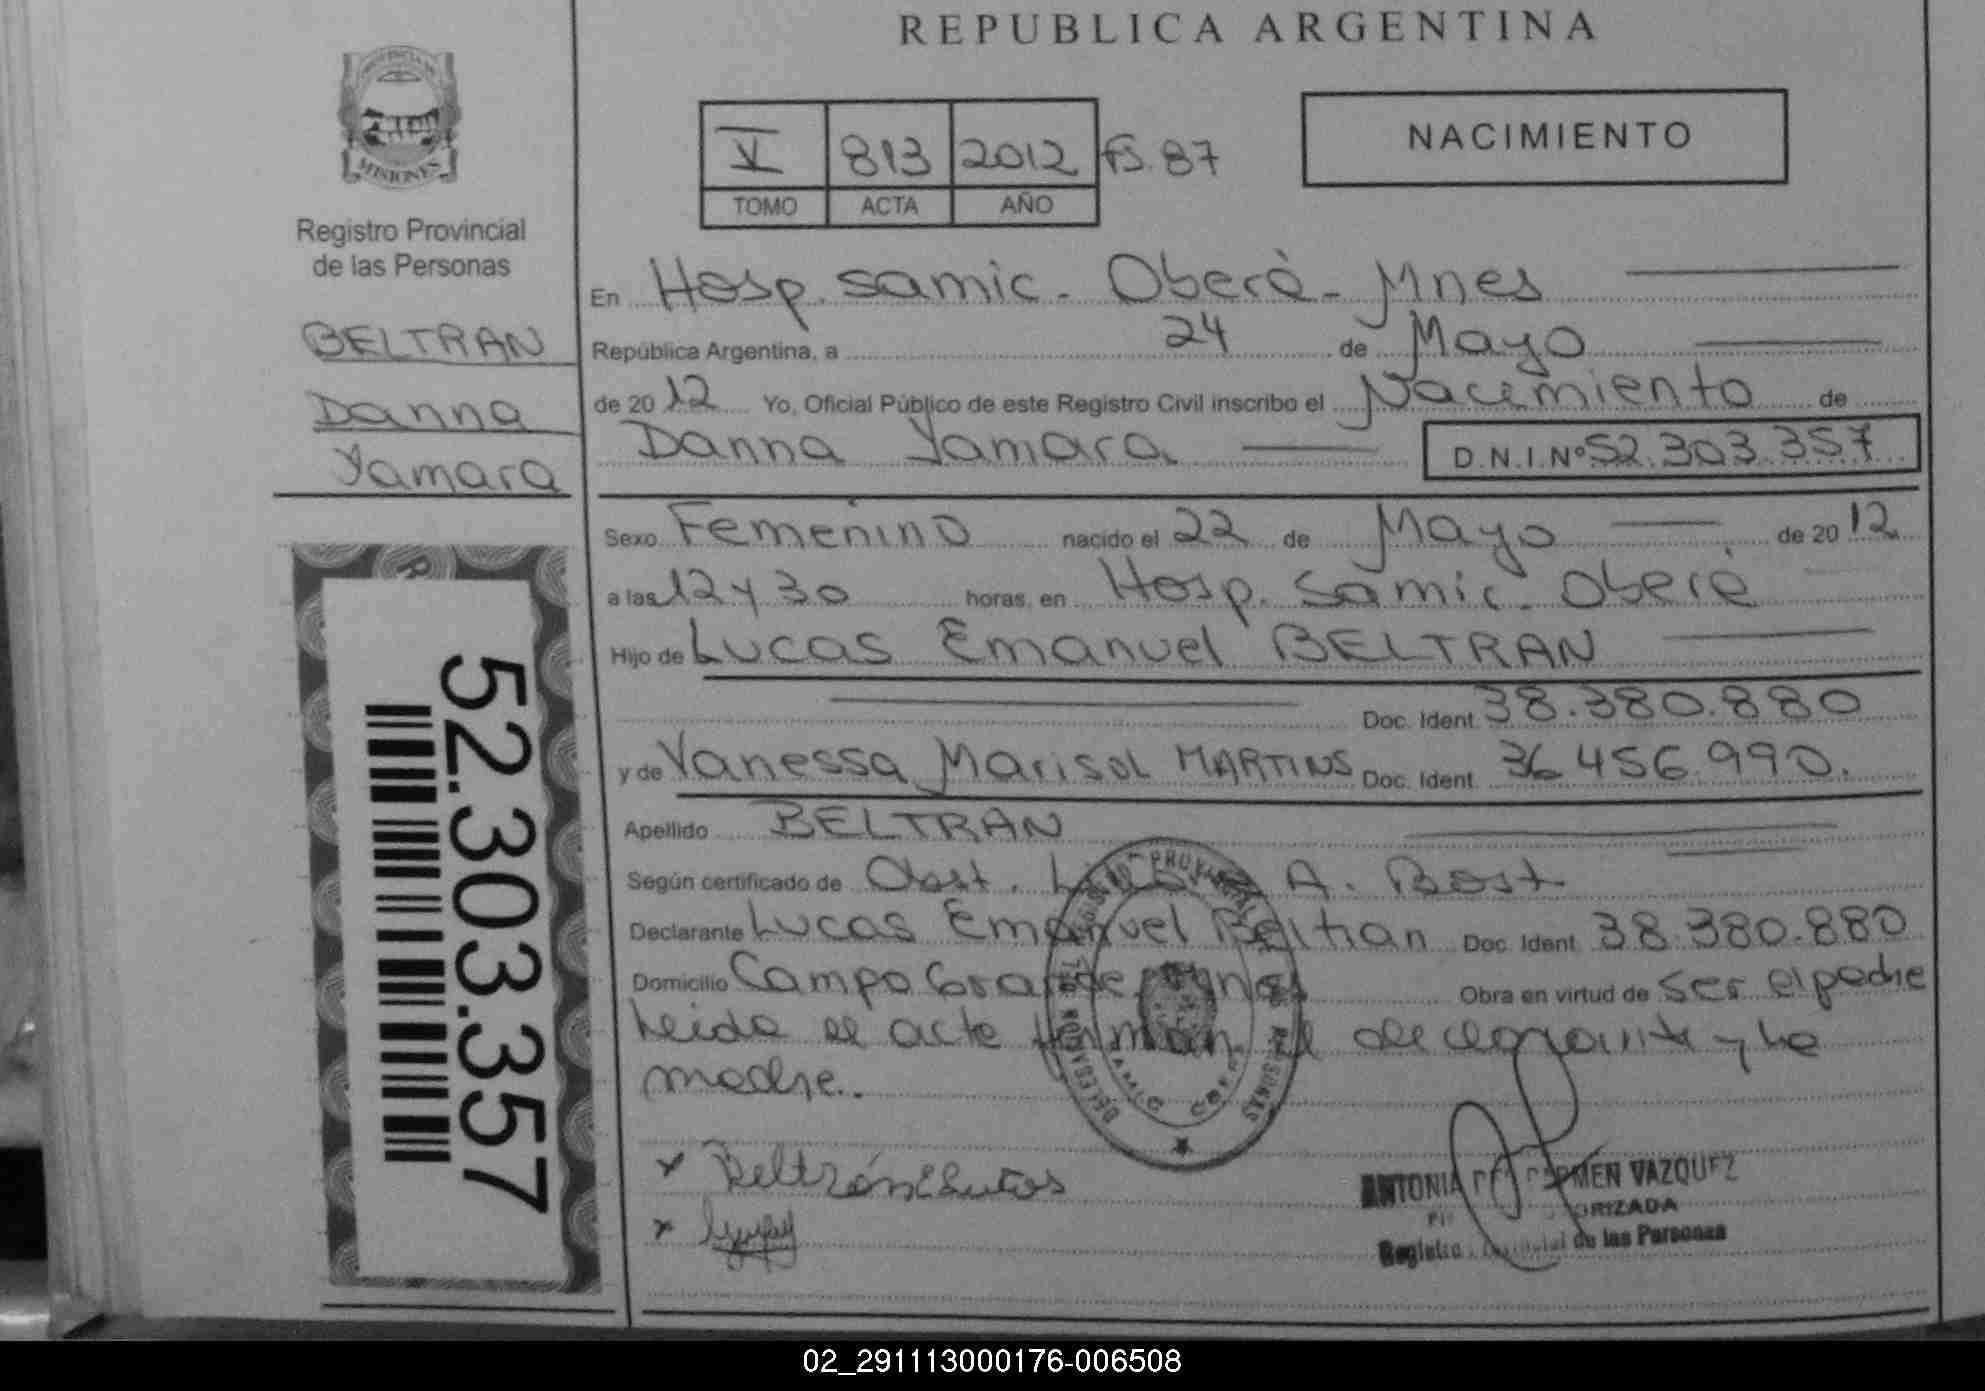 REPUBLICA ARGENTINA
PROVINCIA DE
MISIONES
Registro Provincial
de las Personas
BELTRAN
Danna
Yamara
52.303.357
V 813 2012 Fs. 87
TOMO ACTA AÑO
NACIMIENTO
En Hosp. Samic. Oberá - Mnes
República Argentina, a 24 de Mayo
de 2012 Yo, Oficial Público de este Registro Civil inscribo el Nacimiento de
Danna Yamara D.N.I.Nº 52.303.357
Sexo Femenino nacido el 22 de Mayo de 2012
a las 12 y 30 horas, en Hosp. Samic. Oberá
Hijo de Lucas Emanuel BELTRAN
Doc. Ident. 38.380.880
y de Vanessa Marisol MARTINS Doc. Ident. 36.456.990.
Apellido BELTRAN
Según certificado de Obst. A. Bost
Declarante Lucas Emanuel Beltran Doc. Ident. 38.380.880
Domicilio Campo Grande Mnes Obra en virtud de ser el padre
Leida el acta firman el declarante y la
madre.
x Beltrán Lucas
x
ANTONIA DEL CARMEN VAZQUEZ
AUTORIZADA
Registro Provincial de las Personas
02_291113000176-006508